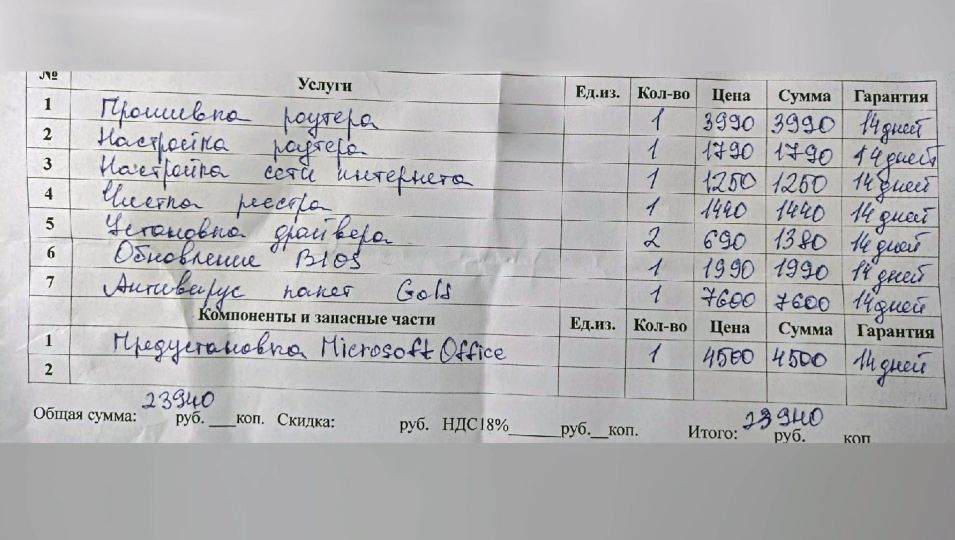 № Услуги Ед.из. Кол-во Цена Сумма Гарантия
1 Прошивка роутера 1 3990 3990 14 дней
2 Настройка роутера 1 1790 1790 14 дней
3 Настройка сети интернета 1 1250 1250 14 дней
4 Чистка реестра 1 1440 1440 14 дней
5 Установка драйвера 2 690 1380 14 дней
6 Обновление BIOS 1 1990 1990 14 дней
7 Антивирус пакет Gold 1 7600 7600 14 дней
Компоненты и запасные части Ед.из. Кол-во Цена Сумма Гарантия
1 Предустановка Microsoft Office 1 4500 4500 14 дней
2
Общая сумма: 23940 руб. ___коп. Скидка: руб. НДС18%______руб.__коп. Итого: 23940 руб. коп